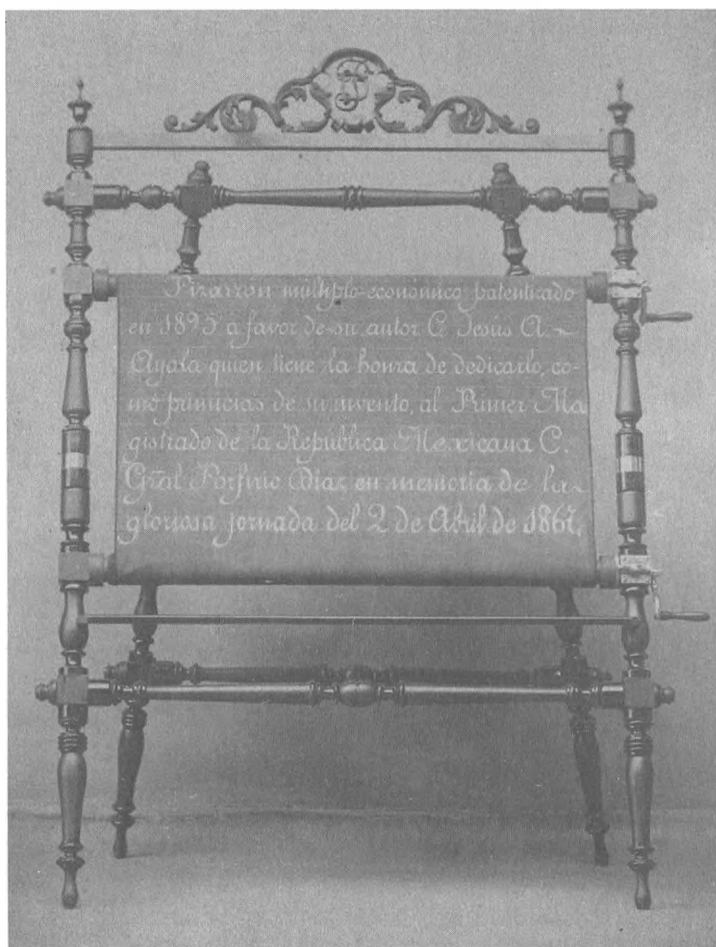 Pizarrón múltiplo-económico patentizado
en 1895 a favor de su autor C. Jesús A.-
Ayala quien tiene la honra de dedicarlo, co-
mo primicias de su invento, al Primer Ma
gistrado de la República Mexicana C.
Gral Porfirio Díaz en memoria de la-
gloriosa jornada del 2 de Abril de 1867.